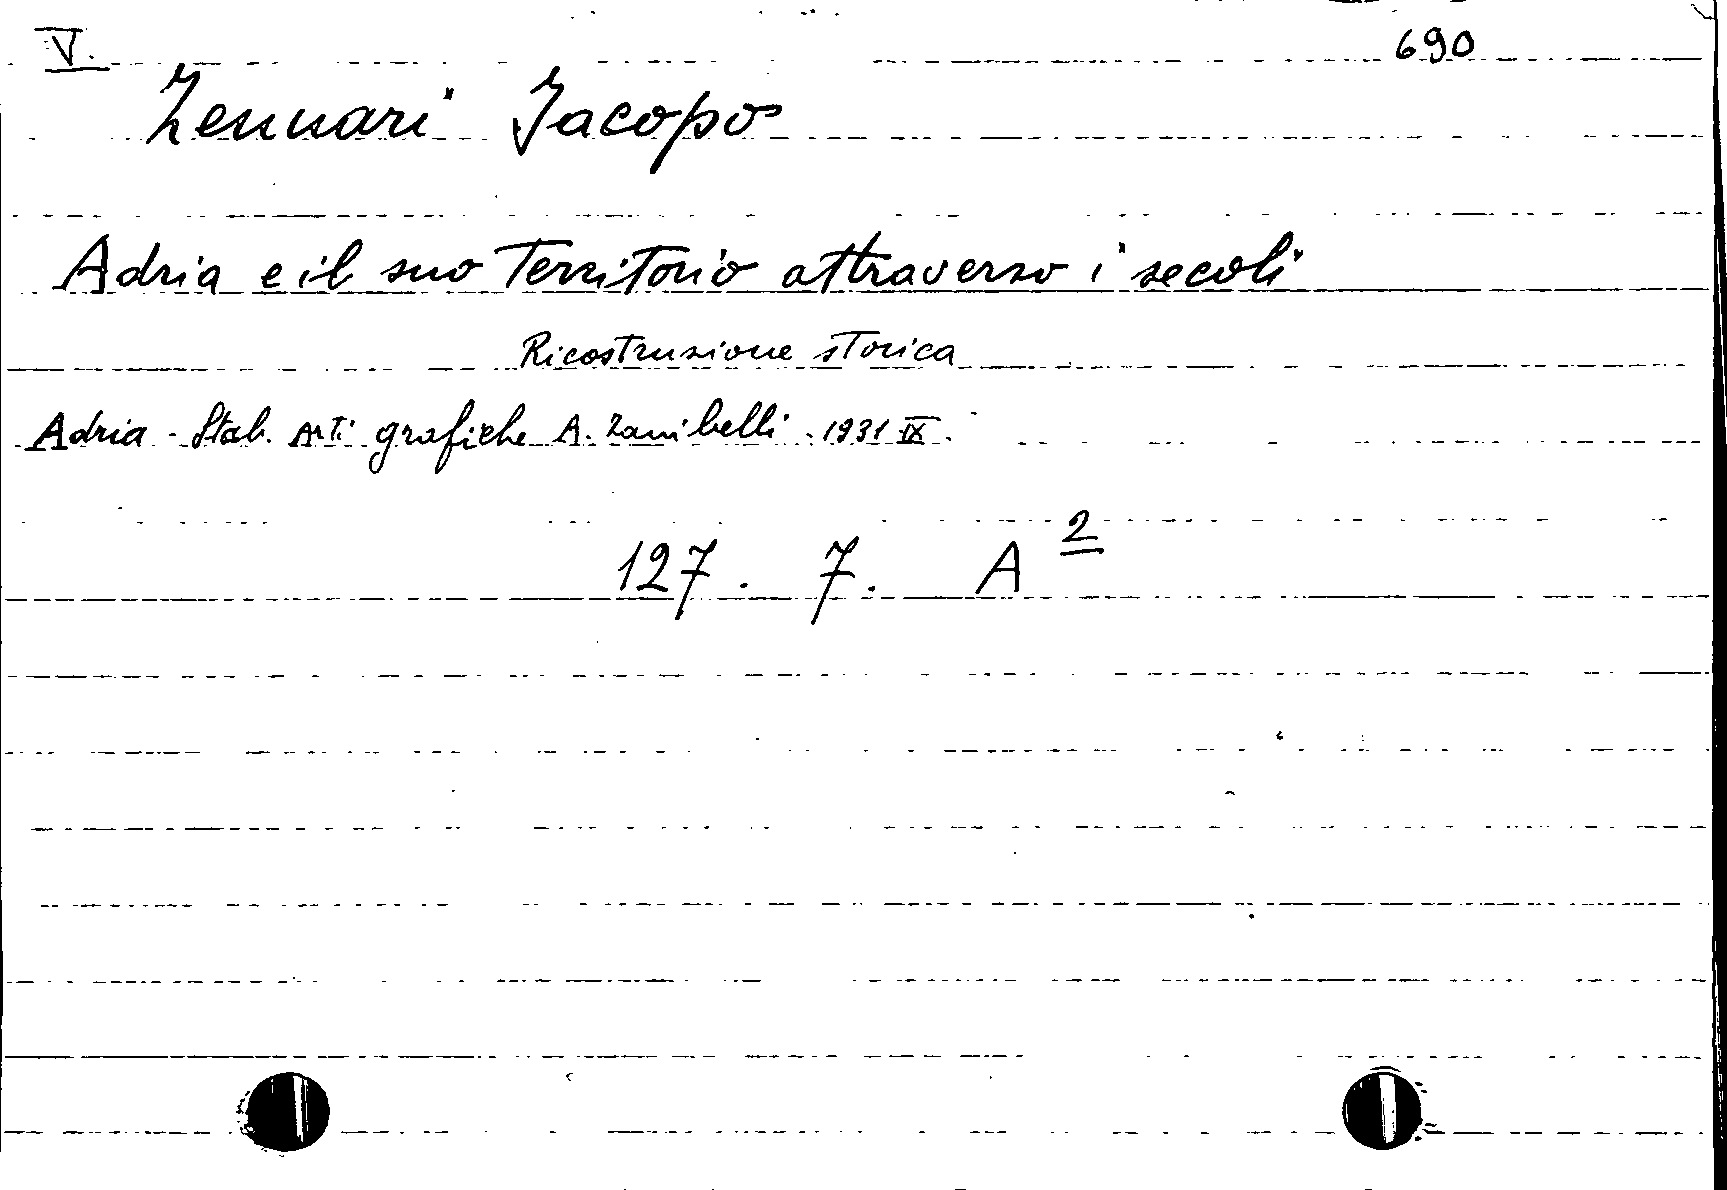 V. 690
Zennari Jacopo
Adria e il suo Territorio attraverso i secoli
Ricostruzione storica
Adria - Stab. Arti grafiche A. Zanibelli. 1931 IX.
127. 7. A 2